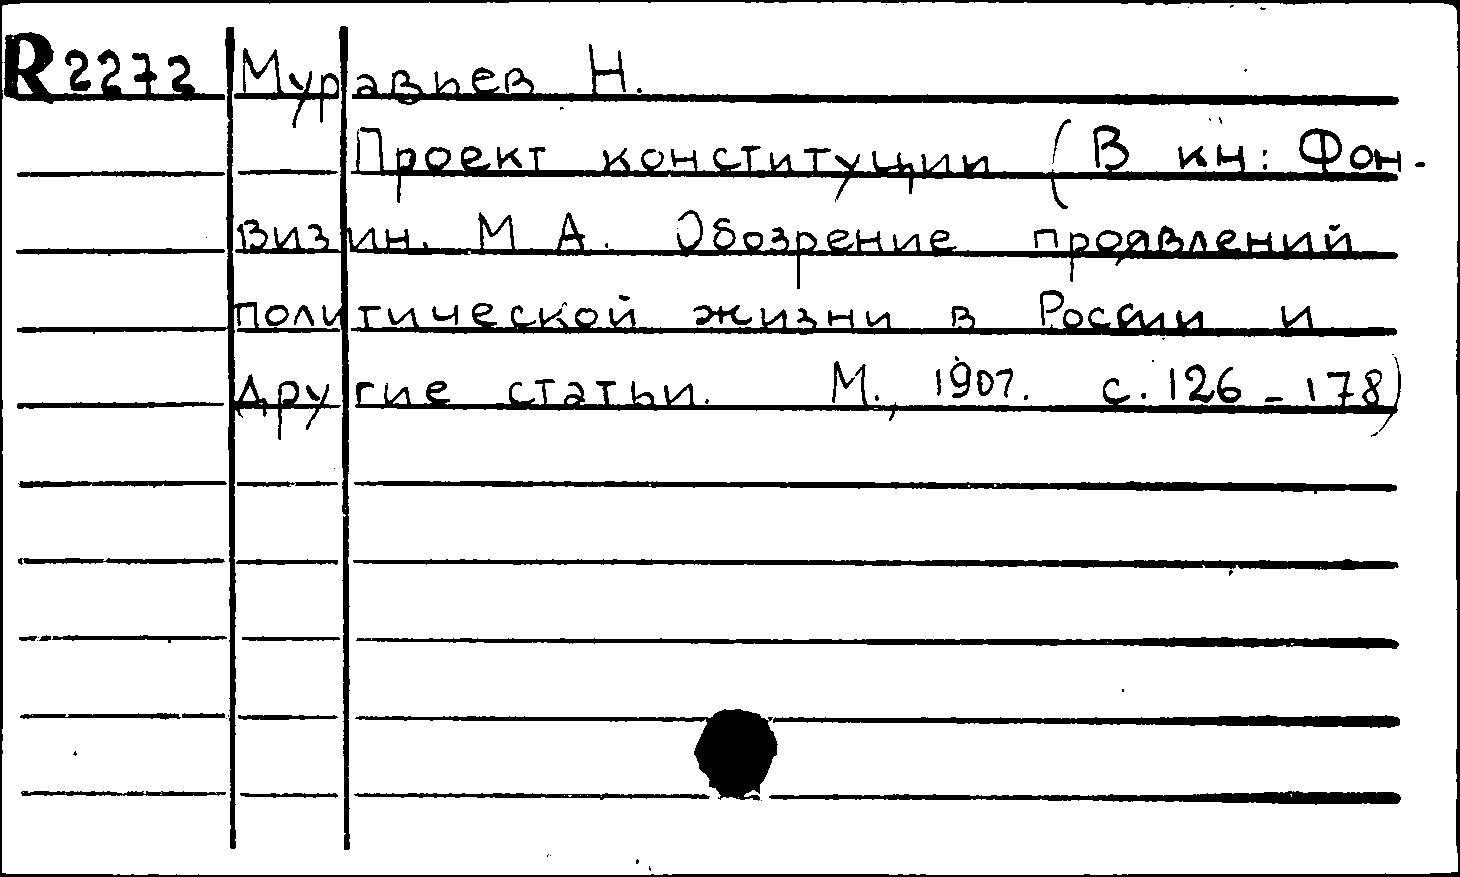 R2272 Муравьев Н.
Проект конституции (В кн: Фон-
визин. М А. Обозрение проявлений
политической жизни в России и
другие статьи. М., 1907. с. 126-178)